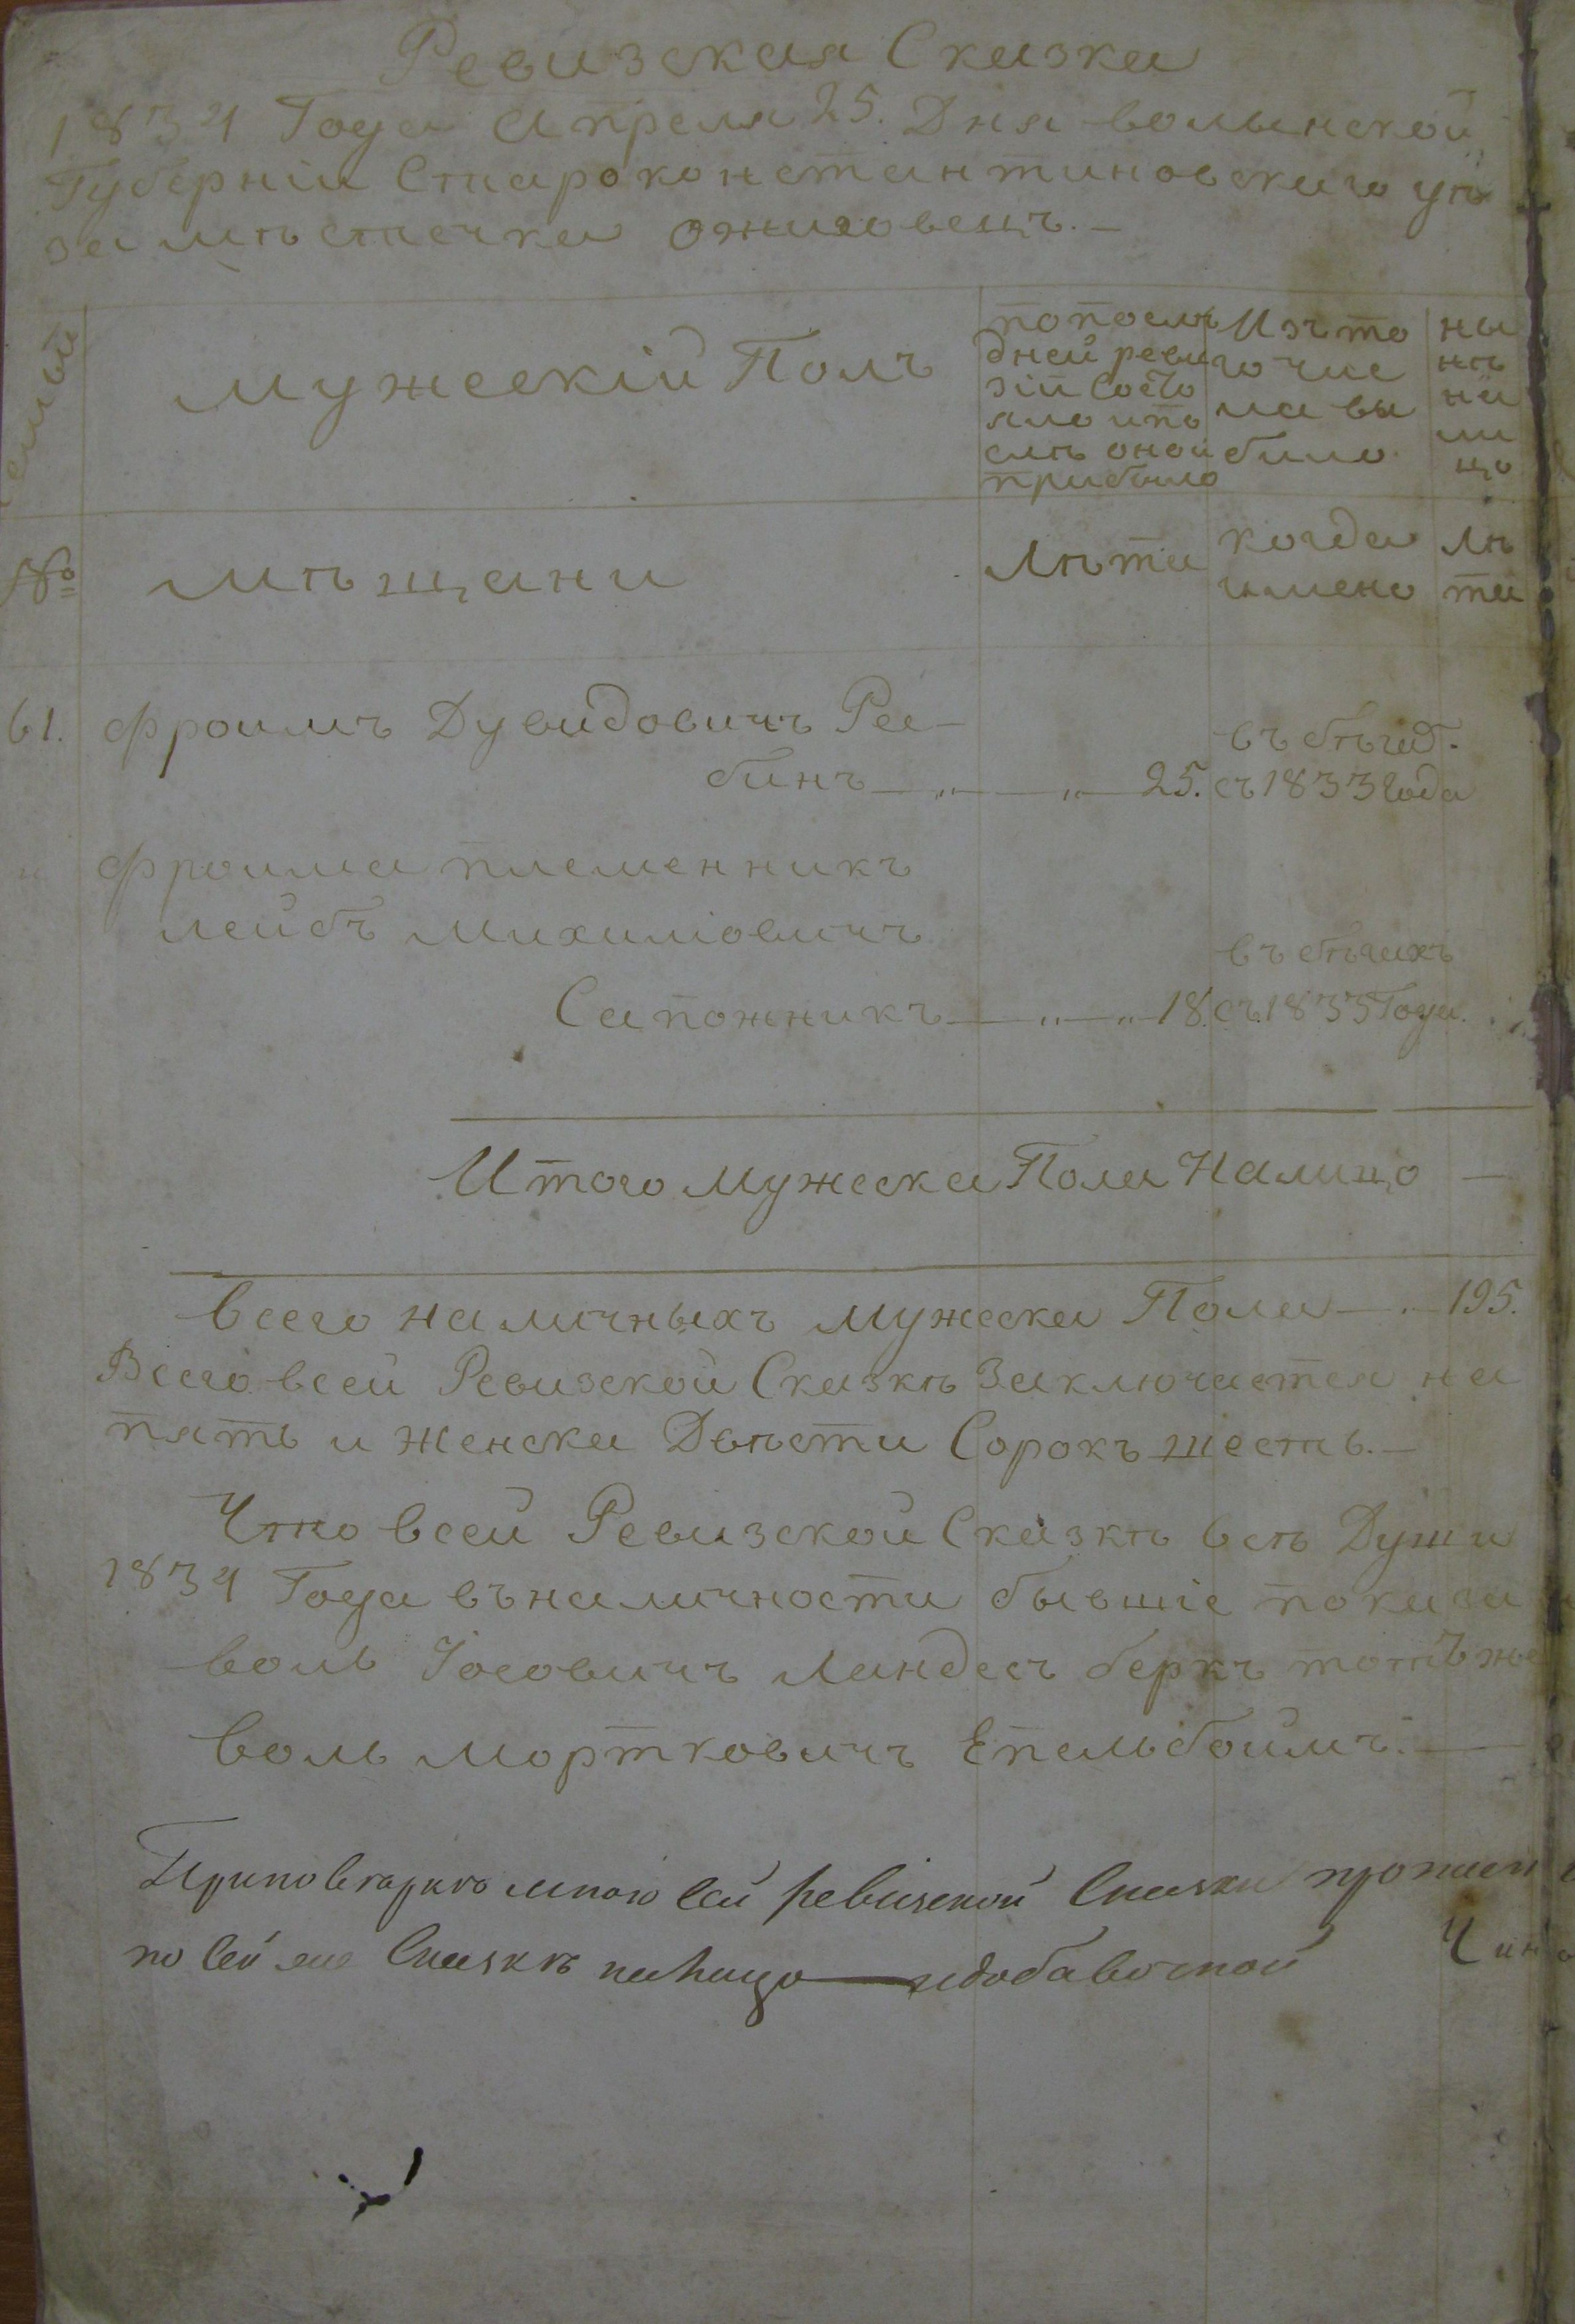 Ревизская Сказка
1834 Года Апреля 25. Дня волынской
Губерніи Староконстантиновскаго уѣ
за мѣстечка ожиговецъ.—
семьи
мужескій Полъ
попослѣ
дней реви
зіи Состо
яло ипо
слѣ оной
прибыло
Изъ то
го чис
ла вы
было
ны
нѣ
на
ли
цо
№
мѣщани
Лѣта
когда
имено
Лѣ
та
61. Фроимъ Дувидовичъ Ра— въ бѣгаб.
бинъ — „ — „ — 25. съ 1833 года
„ Фроима племенникъ
лейбъ Михиліовичъ въ бѣгахъ
Сапожникъ — „ — „ — 18. съ. 1833 Года.
Итого Мужеска Пола Налицо —
Всего наличныхъ мужеска Пола — . — 195.
Всего всей Ревизской Сказкѣ Заключается на
пять и женска Двѣсти Сорокъ шесть.—
Что всей Ревизской Сказкѣ всѣ Души
1834 Года въналичности бывшіе показа
воль Іосовичъ Ландесъ беркъ тотъ же
Воль мортковичъ Епельбоймъ. —
мною сей ревизской Сказки
по сей же Сказкѣ налицо — идобавочной Чино